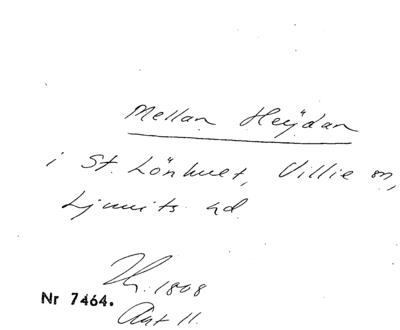 Mellan Heÿdan
i St. Lönhult, Villie sn,
Ljunits hd.
1808
Nr 7464.
Akt 11.